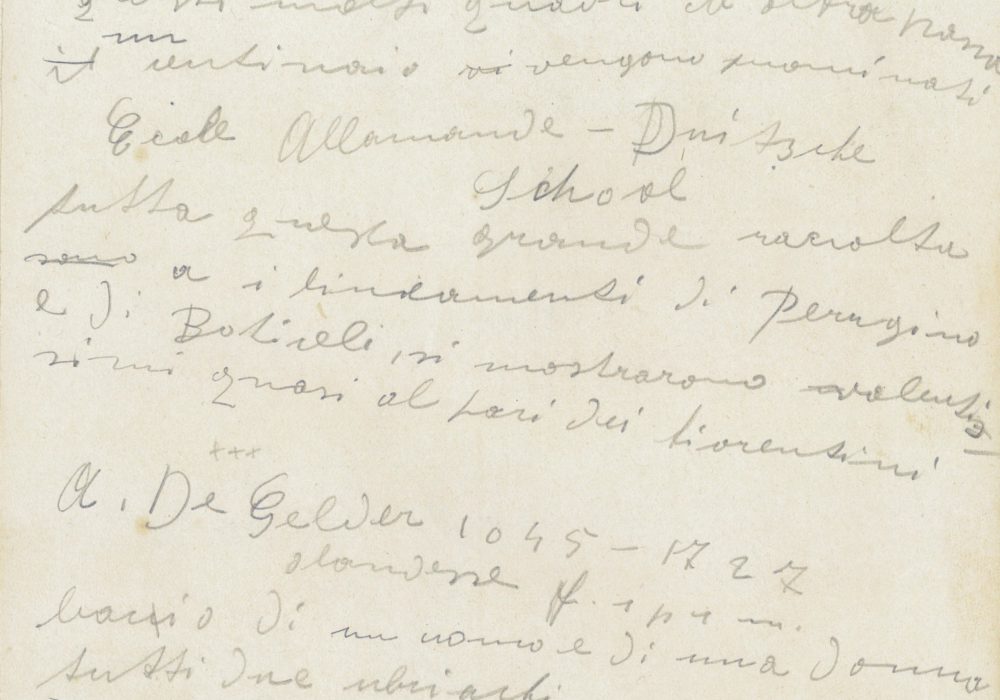 questi molti quadri ed oltrapassa
un
il centinaio vi vengono nominati
Ecole Allamande - Duitzche
School
tutta questa grande raccolta
sono a i lineamenti di Perugino
e di Boticeli, si mostrarono valentis
simi quasi al pari dei fiorentini
+++
A. De Gelder 1045 - 1727
olandesse
baccio di un uomo e di una donna
tutti due ubriachi